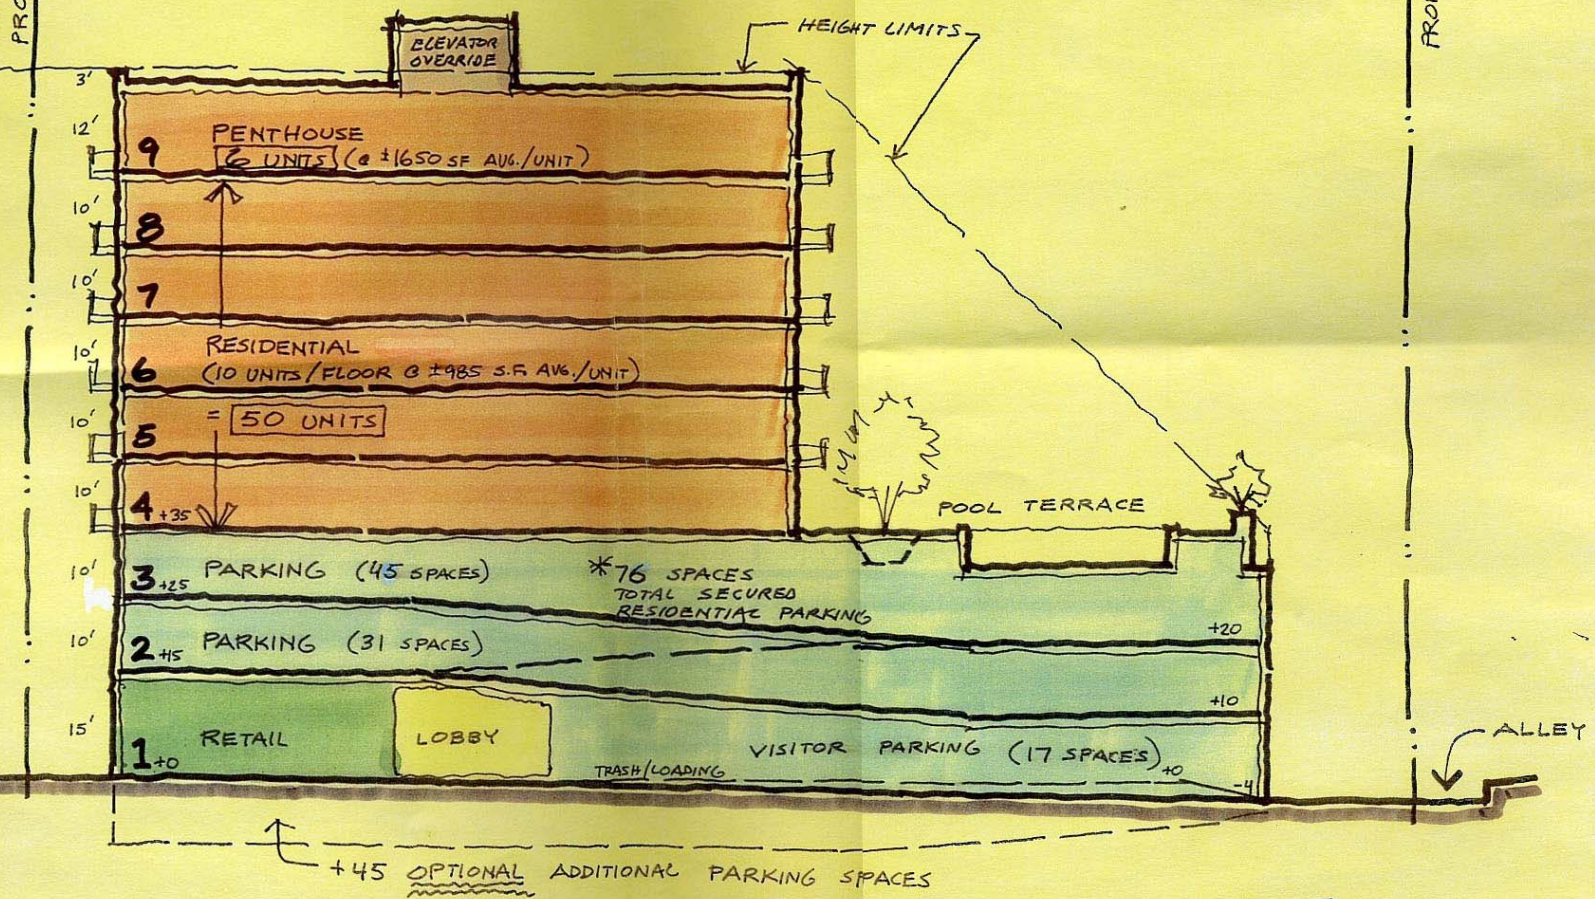 PRO
PROP
HEIGHT LIMITS
ELEVATOR
OVERRIDE
3'
12'
9 PENTHOUSE
6 UNITS (@ ±1650 SF AVG./UNIT)
10'
8
10'
7
10'
RESIDENTIAL
6 (10 UNITS/FLOOR @ ±985 S.F. AVG./UNIT)
10'
= 50 UNITS
5
10'
4 +35
POOL TERRACE
10'
3 +25 PARKING (45 SPACES)
*76 SPACES
TOTAL SECURED
RESIDENTIAL PARKING
+20
10'
2 +15 PARKING (31 SPACES)
+10
15'
1 +0 RETAIL
LOBBY
VISITOR PARKING (17 SPACES) +0
TRASH/LOADING
-4
ALLEY
+45 OPTIONAL ADDITIONAL PARKING SPACES